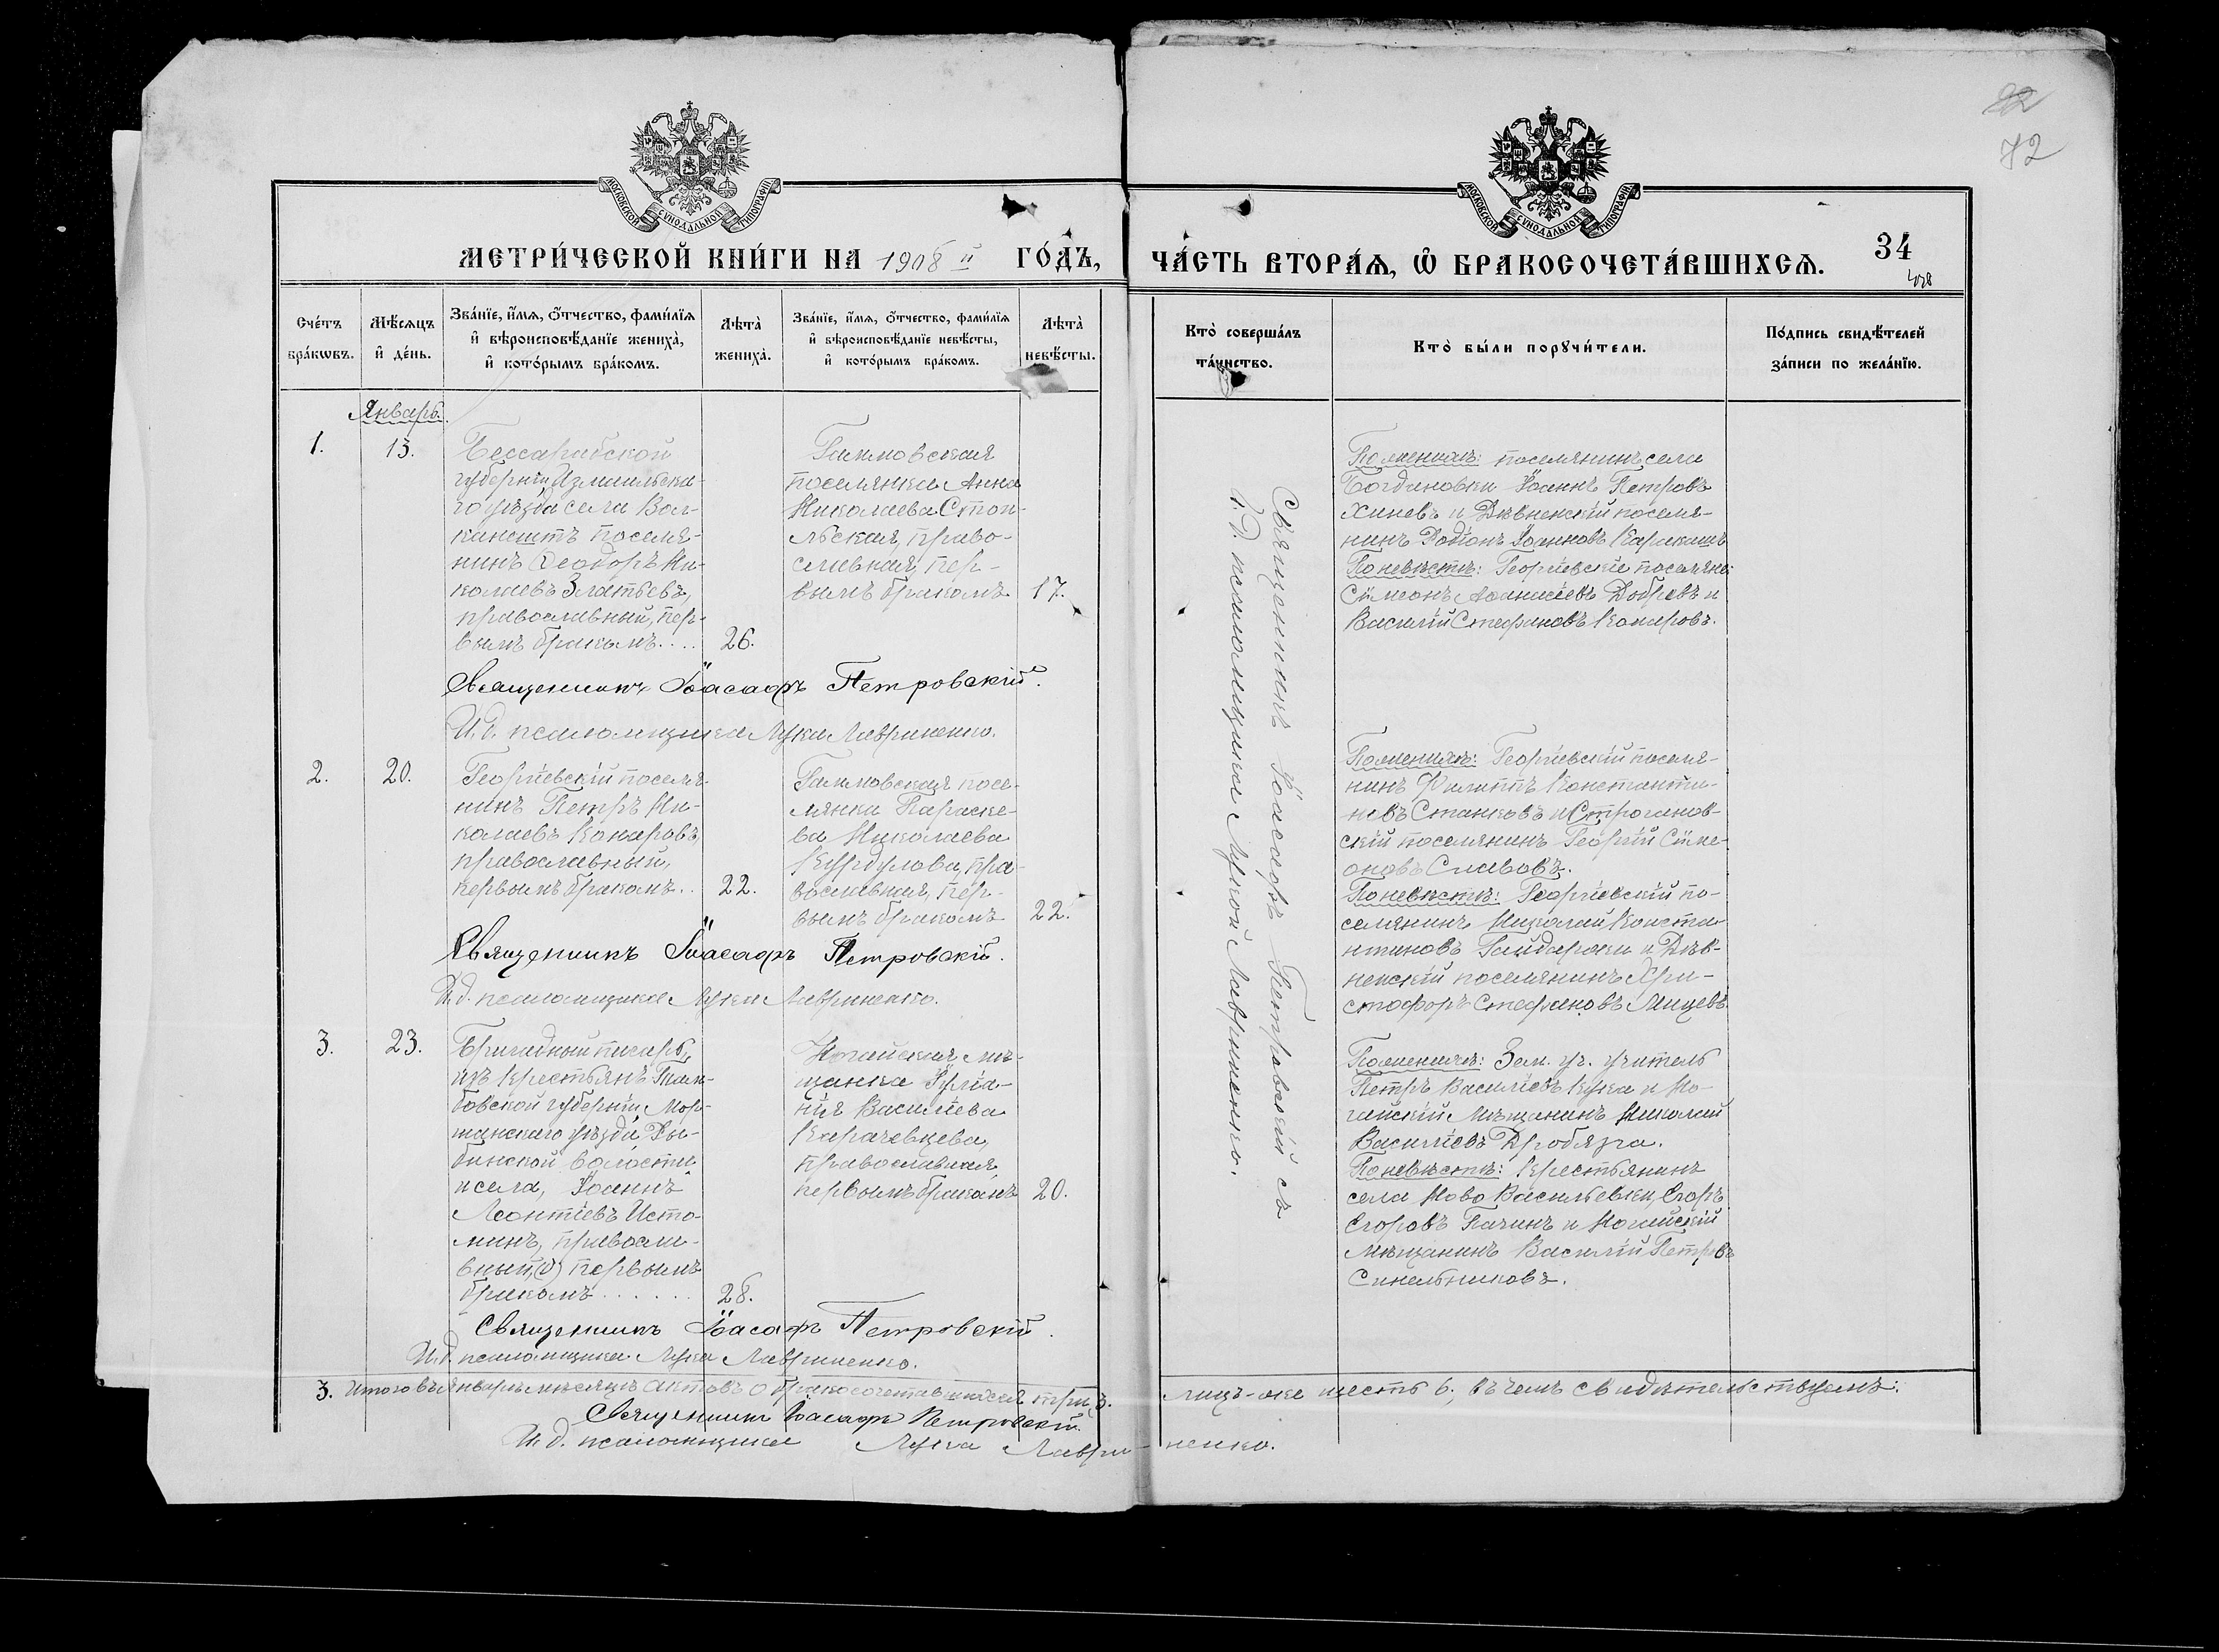 72
МОСКОВСКОЙ СУНОДАЛЬНОЙ ТИПОГРАФІИ
МОСКОВСКОЙ СУНОДАЛЬНОЙ ТИПОГРАФІИ
МЕТРИ́ЧЕСКОЙ КНИ́ГИ НА 1908 й ГО́ДЪ,
ЧА́СТЬ ВТОРА́Ѧ, Ѽ БРАКОСОЧЕТА́ВШИХСѦ.
34
Сче́тъ бра́кѡвъ.
Мѣ́сѧцъ и҆ де́нь.
Зва́нїе, и҆́мѧ, о҆́тчество, фами́лїѧ
и҆ вѣроисповѣ́данїе жениха̀,
и҆ кото́рымъ бра́комъ.
Лѣта̀ жениха̀.
Зва́нїе, и҆́мѧ, о҆́тчество, фами́лїѧ
и҆ вѣроисповѣ́данїе невѣ́сты,
и҆ кото́рымъ бра́комъ.
Лѣта̀ невѣ́сты.
Кто̀ соверша́лъ
та́инство.
Кто̀ бы́ли порꙋчи́тели.
По́дпись свидѣ́телей
за́писи по жела́нїю.
Январь.
1.
13.
Бессарабской
губерніи, Измаильска-
го уѣзда села Вол-
канештъ поселя-
нинъ Ѳеодоръ Ни-
колаевъ Златьевъ,
православный, пер-
вымъ бракомъ....
26.
Гаммовская
поселянка Анна
Николаева Стои-
льская, право-
славная, пер-
вымъ бракомъ
17.
Священникъ Іоасафъ Петровскій.
И. д. псаломщика Лука Лавриненко.
По женихѣ: поселянинъ села
Богдановки Іоаннъ Петровъ
Хиневъ и Дѣвненскій поселя-
нинъ Родіонъ Іоанновъ Каракашъ
По невѣстѣ: Георгіевскіе поселяне
Сѵмеонъ Аѳанасіевъ Добревъ и
Василій Стефановъ Комаровъ.
2.
20.
Георгіевскій поселя-
нинъ Петръ Ни-
колаевъ Комаровъ,
православный,
первымъ бракомъ..
22.
Гаммовская посе-
лянка Параске-
ва Николаева
Курдулова, пра-
вославная, пер-
вымъ бракомъ
22.
Священникъ Іоасафъ Петровскій.
И. д. псаломщика Лука Лавриненко.
По женихѣ: Георгіевскій поселя-
нинъ Филиппъ Константи-
новъ Станковъ и Строганов-
скій поселянинъ Георгій Сѵме-
оновъ Славовъ.
По невѣстѣ: Георгіевскій по-
селянинъ Николай Конста-
нтиновъ Гайдаржи и Дѣв-
ненскій поселянинъ Хри-
стофоръ Стефановъ Мицевъ
3.
23.
Бригадный писарь,
изъ крестьянъ Там-
бовской губерніи, Мор-
шанскаго уѣзда, Ры-
бинской волости
и села, Іоаннъ
Леонтіевъ Исто-
минъ, православ-
вный, первымъ
бракомъ......
28.
Ногайская мѣ-
щанка Іуліа-
нія Василіева
Карачевцева,
православная,
первымъ бракомъ
20.
Священникъ Іоасафъ Петровскій.
И. д. псаломщика Лука Лавриненко.
По женихѣ: Зем. уч. учитель
Петръ Василіевъ Кука и Но-
гайскій мѣщанинъ Николай
Василіевъ Дробязга.
По невѣстѣ: Крестьянинъ
села Ново Васильевки, Егоръ
Егоровъ Пачинъ и Ногайскій
мѣщанинъ Василій Петровъ
Синельниковъ.
Священникъ Іоасафъ Петровскій съ
И. д. псаломщика Лукой Лавриненко.
3. Итого въ январѣ мѣсяцѣ актовъ о бракосочетавшихся три, 3. лицъ-же шесть 6; въ чемъ свидѣтельствуемъ:
Священникъ Іоасафъ Петровскій.
И. д. псаломщика Лука Лавриненко.